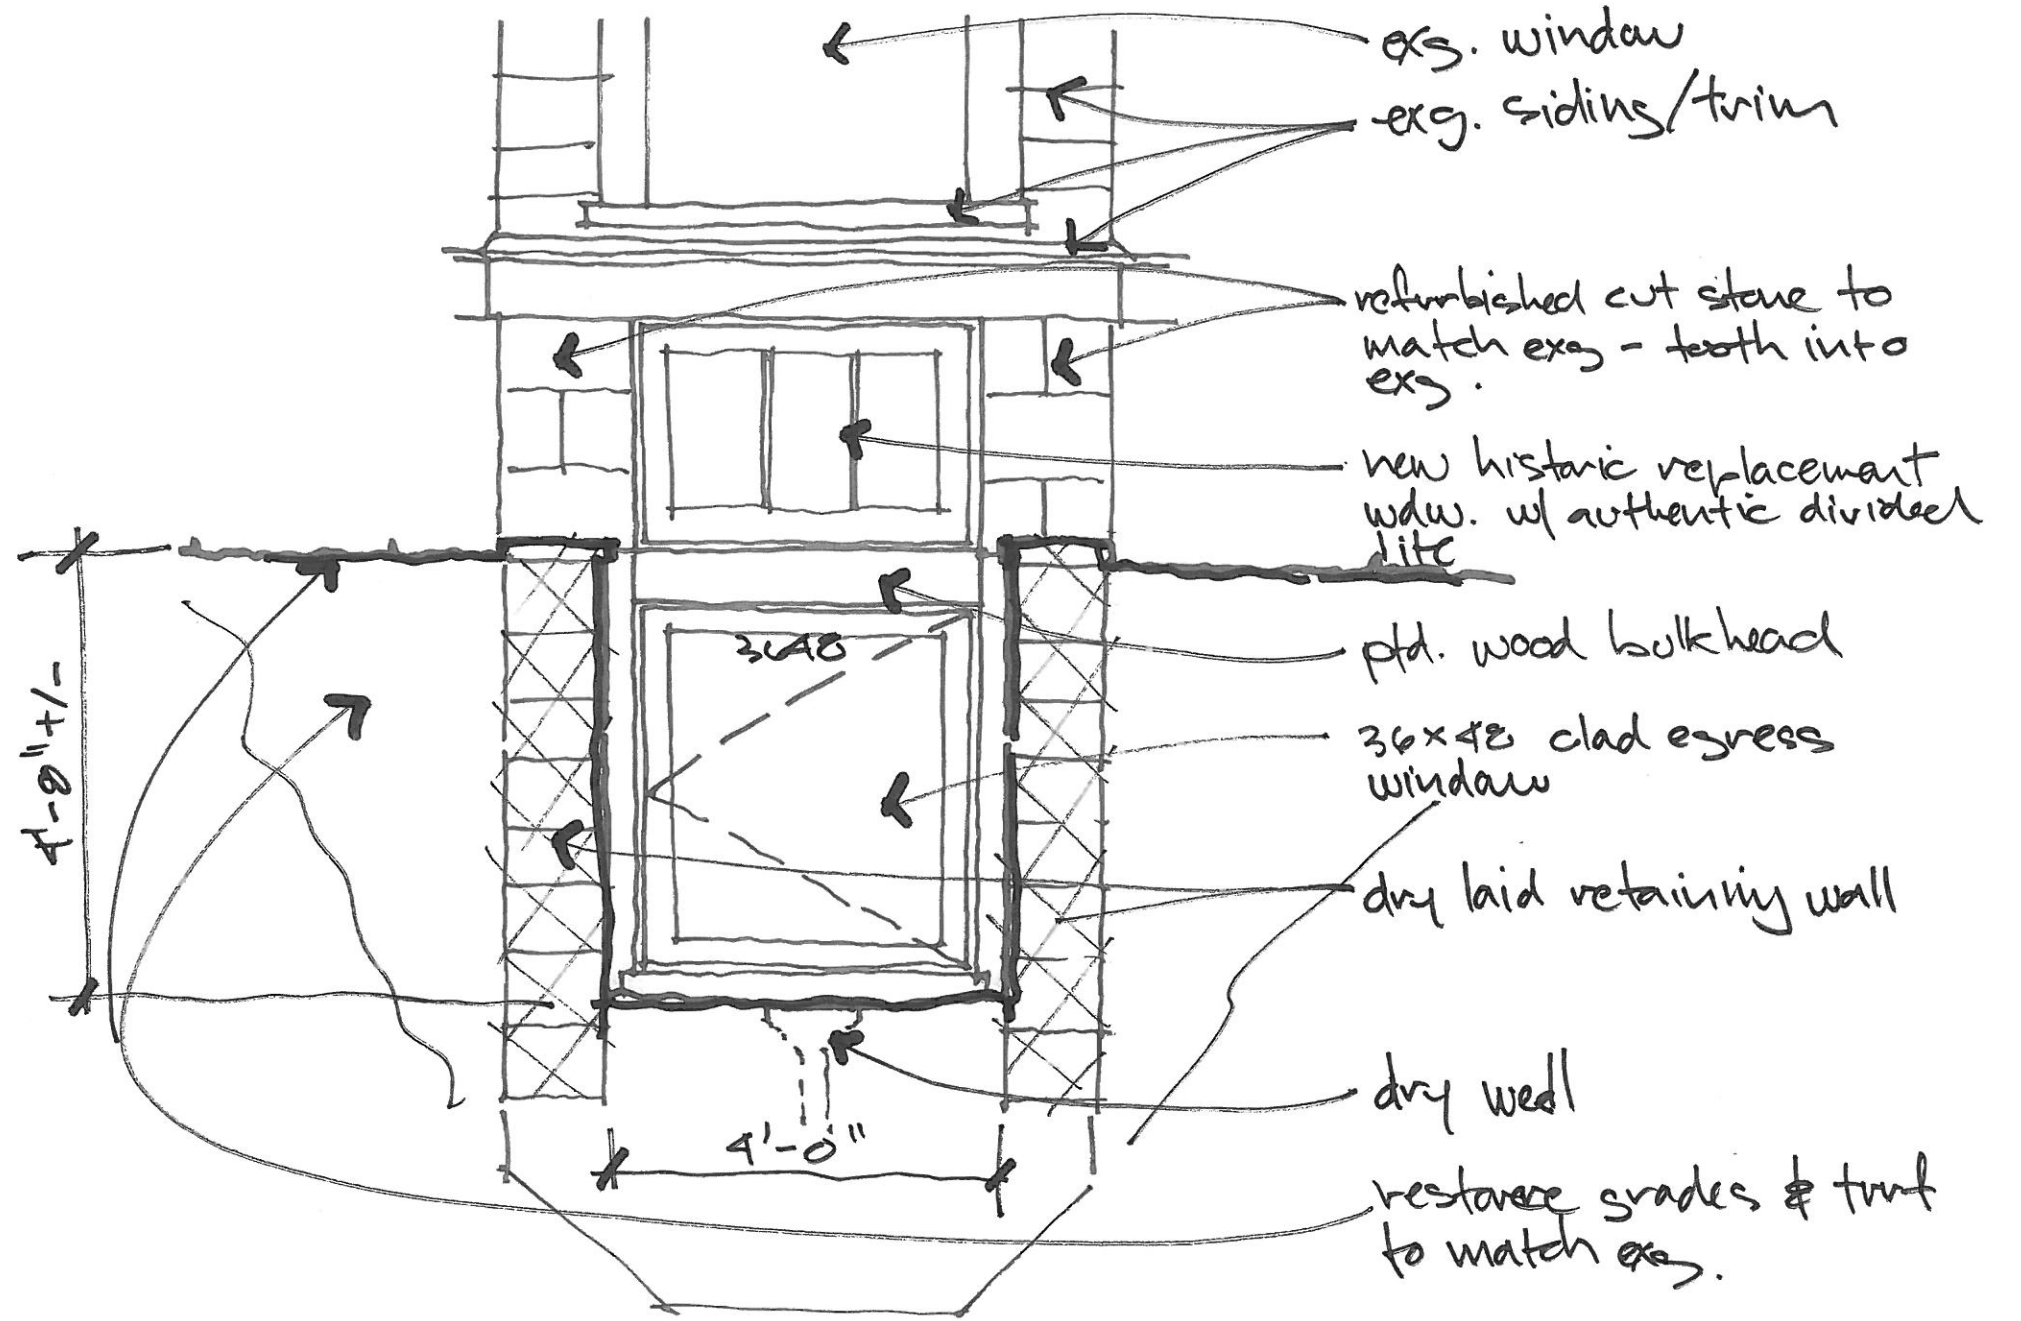 exg. window
exg. siding/trim
refurbished cut stone to
match exg - tooth into
exg.
new historic replacement
wdw. w/ authentic divided
lite
ptd. wood bulkhead
3648
36x48 clad egress
window
4'-8"+/-
dry laid retaining wall
dry well
4'-0"
restore grades & turf
to match exg.